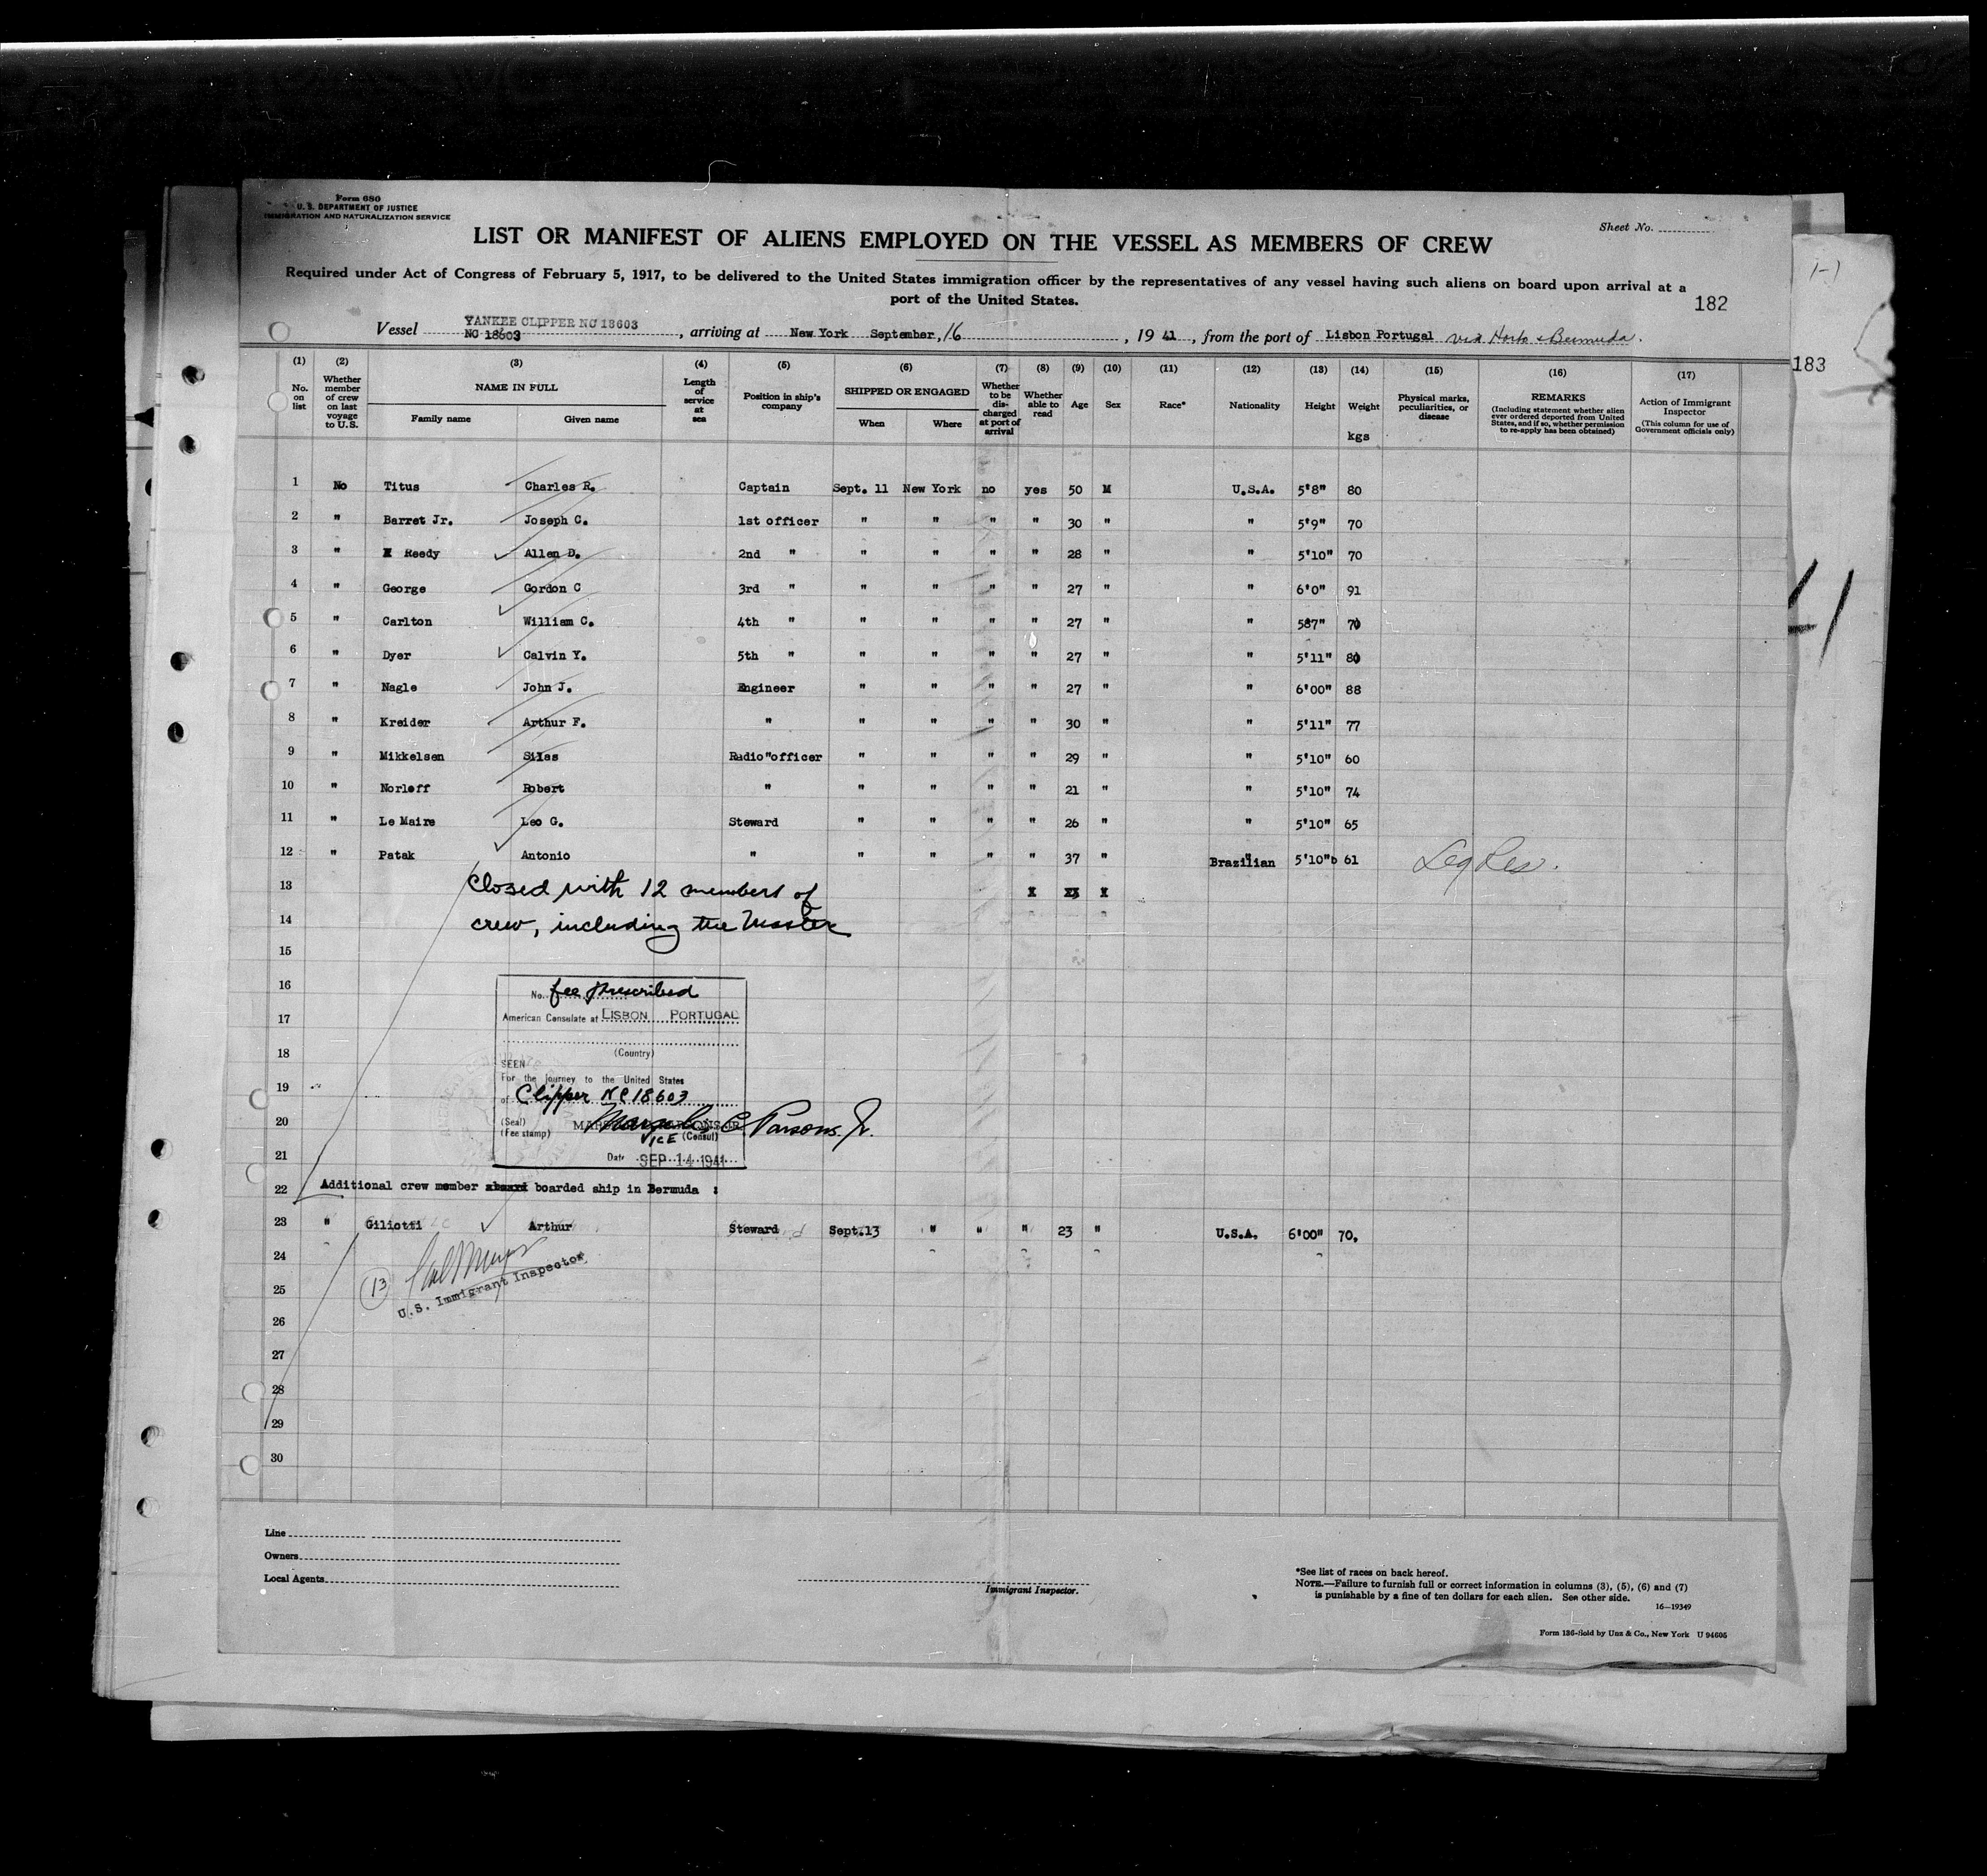 Form 680
U. S. DEPARTMENT OF JUSTICE
IMMIGRATION AND NATURALIZATION SERVICE
Sheet No.
LIST OR MANIFEST OF ALIENS EMPLOYED ON THE VESSEL AS MEMBERS OF CREW
Required under Act of Congress of February 5, 1917, to be delivered to the United States immigration officer by the representatives of any vessel having such aliens on board upon arrival at a
port of the United States.
182
Vessel YANKEE CLIPPER NC 18603 NC 18603, arriving at New York September, 16, 19 41, from the port of Lisbon Portugal via Horta & Bermuda.
183
(1) (2) (3) (4) (5) (6) (7) (8) (9) (10) (11) (12) (13) (14) (15) (16) (17)
No. on list
Whether member of crew on last voyage to U.S.
NAME IN FULL
Family name Given name
Length of service at sea
Position in ship's company
SHIPPED OR ENGAGED
When Where
Whether to be discharged at port of arrival
Whether able to read
Age
Sex
Race*
Nationality
Height
Weight
kgs
Physical marks, peculiarities, or disease
REMARKS
(Including statement whether alien ever ordered deported from United States, and if so, whether permission to re-apply has been obtained)
Action of Immigrant Inspector
(This column for use of Government officials only)
1 No Titus Charles R. Captain Sept. 11 New York no yes 50 M U.S.A. 5'8" 80
2 " Barret Jr. Joseph C. 1st officer " " " " 30 " " 5'9" 70
3 " Reedy Allen D. 2nd " " " " " 28 " " 5'10" 70
4 " George Gordon C 3rd " " " " " 27 " " 6'0" 91
5 " Carlton William C. 4th " " " " " 27 " " 5'7" 70
6 " Dyer Calvin Y. 5th " " " " " 27 " " 5'11" 80
7 " Nagle John J. Engineer " " " " 27 " " 6'00" 88
8 " Kreider Arthur F. " " " " " 30 " " 5'11" 77
9 " Mikkelsen Silas Radio officer " " " " 29 " " 5'10" 60
10 " Norleff Robert " " " " " 21 " " 5'10" 74
11 " Le Maire Leo G. Steward " " " " 26 " " 5'10" 65
12 " Patak Antonio " " " " " 37 " Brazilian 5'10" 61
13 X X
Closed with 12 members of
14
crew, including the Master
15
16
No. fee prescribed
17
American Consulate at LISBON PORTUGAL
18
(Country)
SEEN
For the journey to the United States
19
of Clipper NC 18603
20
(Seal)
(Fee stamp)
C Parsons. Jr.
VICE (Consul)
21
Date SEP 14 1941
22 Additional crew member boarded ship in Bermuda :
23 " Giliotti Arthur Steward Sept.13 " " " 23 " U.S.A. 6'00" 70.
24
25
13
U.S. Immigrant Inspector
26
27
28
29
30
Line
Owners
Local Agents
Immigrant Inspector.
*See list of races on back hereof.
NOTE.—Failure to furnish full or correct information in columns (3), (5), (6) and (7)
is punishable by a fine of ten dollars for each alien. See other side.
16—19349
Form 136-Sold by Unz & Co., New York U 94605